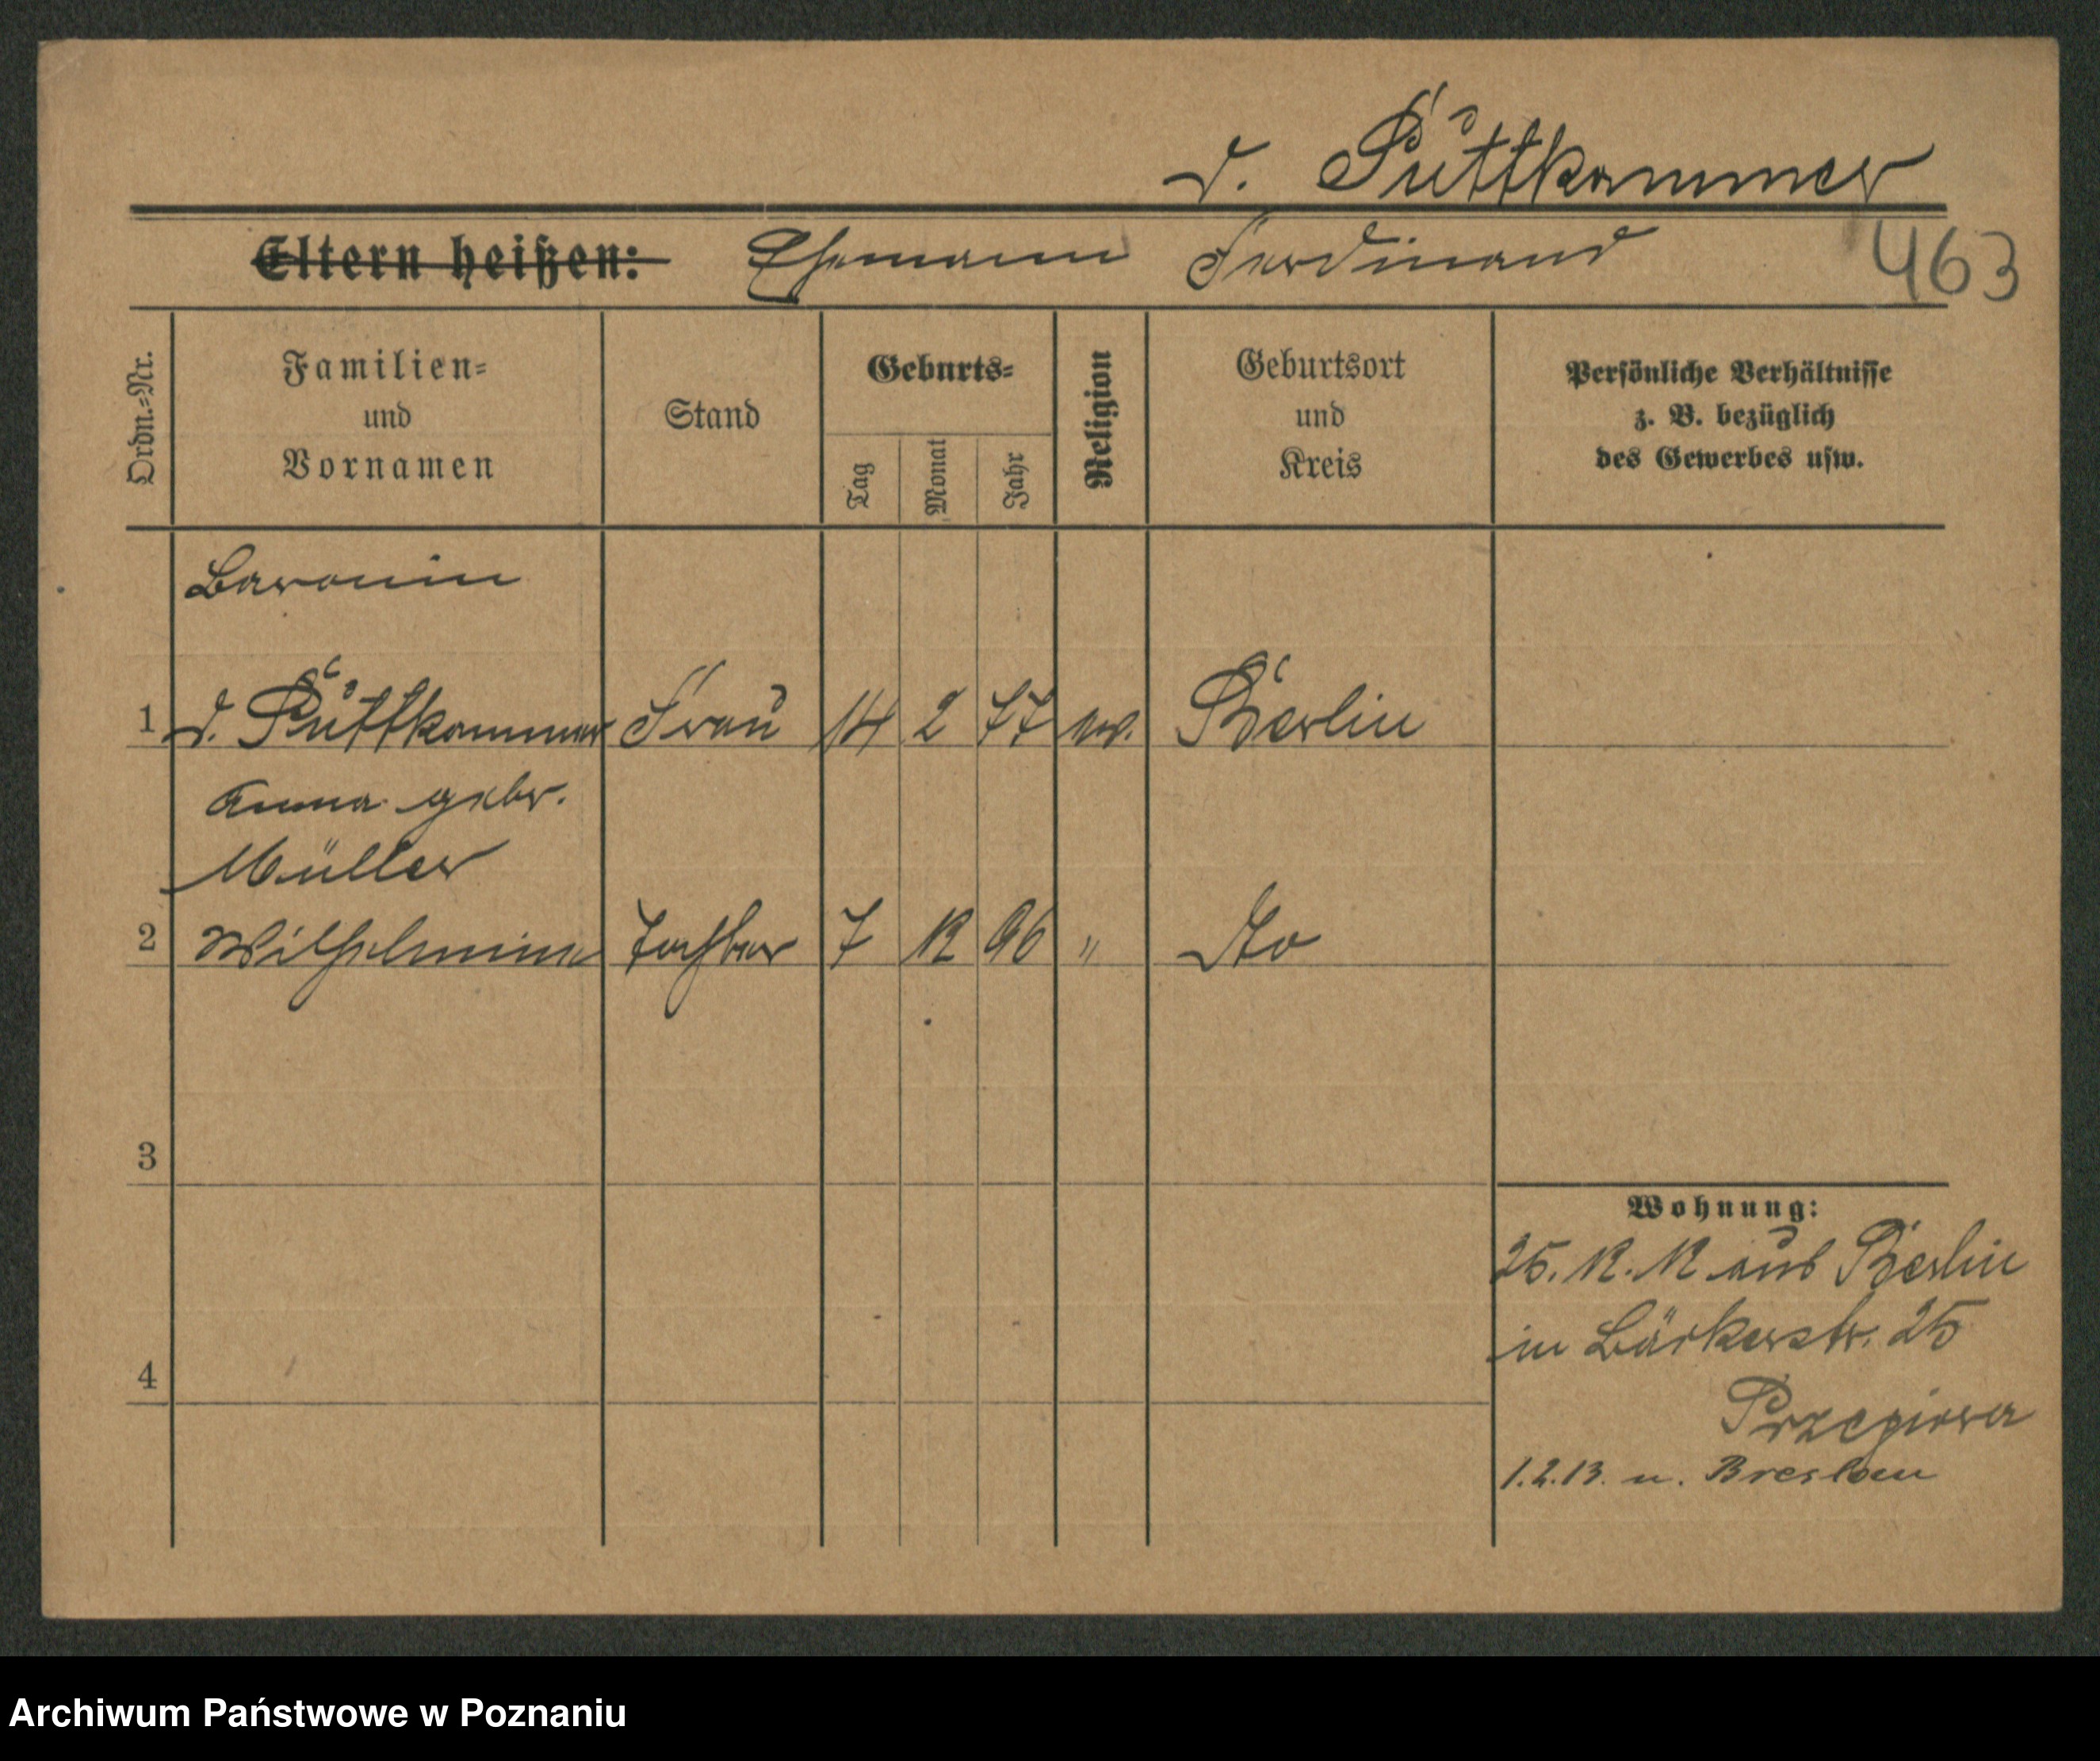 v. Puttkammer
Eltern heißen: Ehemann Ferdinand 463
Ordn.-Nr.
Familien-
und
Vornamen
Stand
Geburts-
Tag
Monat
Jahr
Religion
Geburtsort
und
Kreis
Persönliche Verhältnisse
z. B. bezüglich
des Gewerbes usw.
Baronin
1 v. Puttkammer Frau 14 2 77 ev. Berlin
Anna gebr.
Müller
2 Wilhelmine Tochter 7 12 96 " Dto
3
4
Wohnung:
25. 12. 12 aus Berlin
in Bäckerstr. 25
1.2.13. n. Breslau
Archiwum Państwowe w Poznaniu